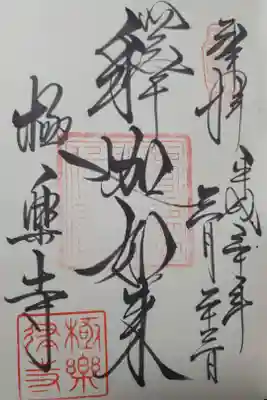 奉拝 平成三十年
六月二十三日
釋迦如来
極楽寺
極樂
律寺